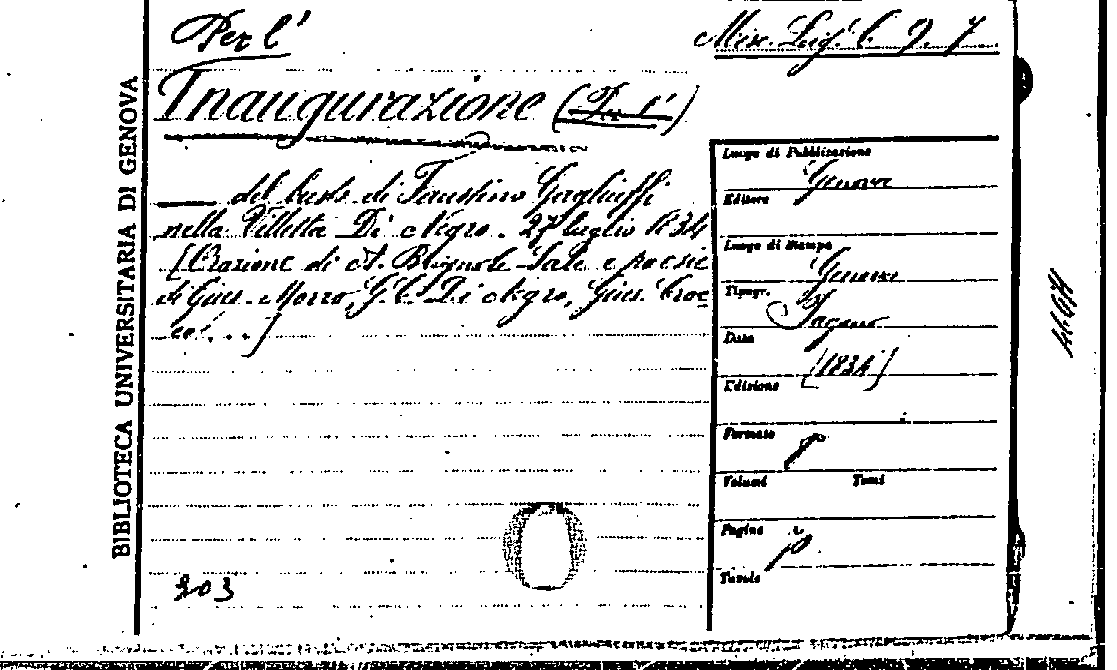 Per l'
Misc. Lig. C. 9. 7
Inaugurazione (Per l')
— del busto di Faustino Gagliuffi
nella Villetta Di Negro. 27 luglio 1834
[Orazione di A. Brignole-Sale e poesie
di Gius. Morro, G. C. Di Negro, Gius. Croc-
co! . . .]
303
BIBLIOTECA UNIVERSITARIA DI GENOVA
Luogo di Pubblicazione
Genova
Editore
Luogo di Stampa
Genova
Tipogr.
Pagano
Data
[1834]
Edizione
Formato
Volumi Tomi
Pagine
Tavole